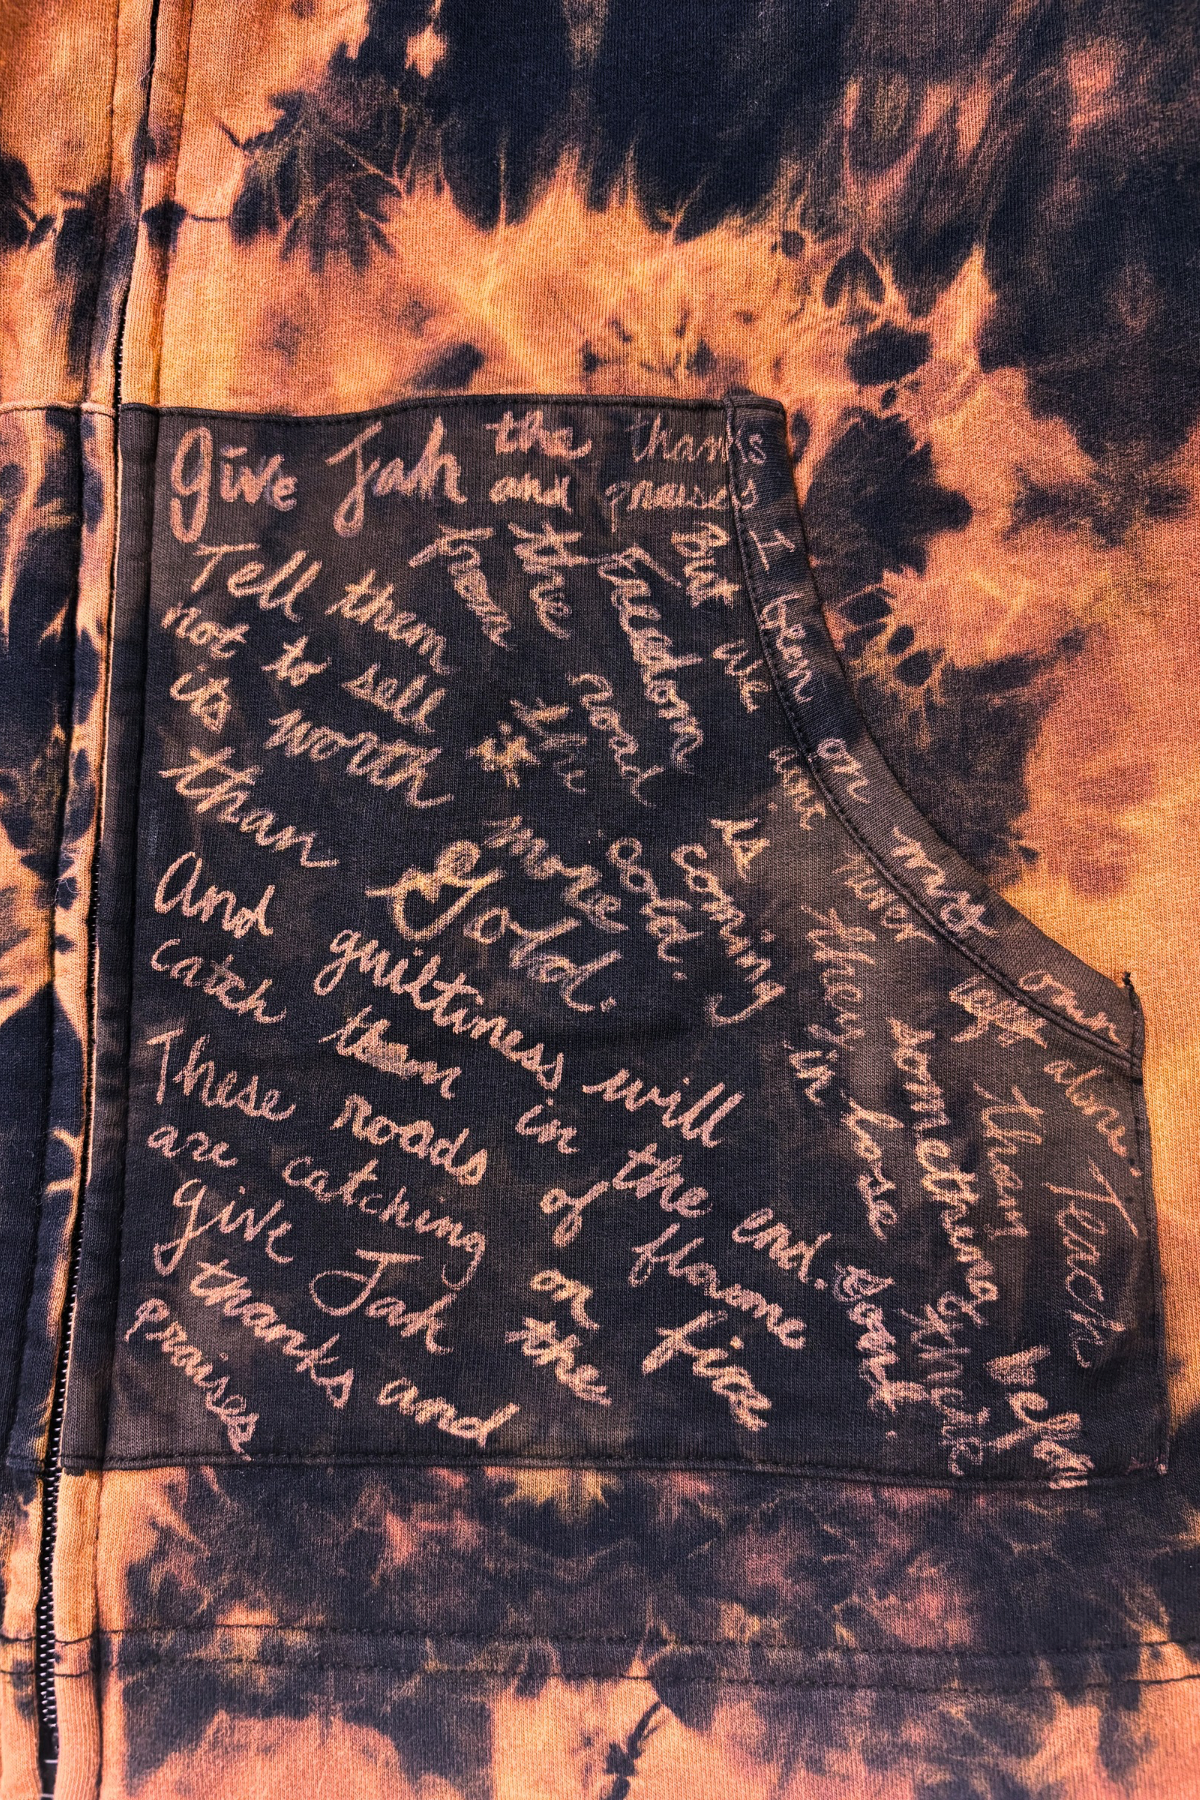 Give Jah the thanks
and praises
Tell them
not to sell it
its worth more
than Gold.
And guiltiness will
catch them in the end.
These roads of flame
are catching on the fire
give Jah
thanks and
praises
from the road
the
Freedom
is coming
cold.
in lose
dont
But we aint never left alone.
they something
than
there
Teach
I been on my own